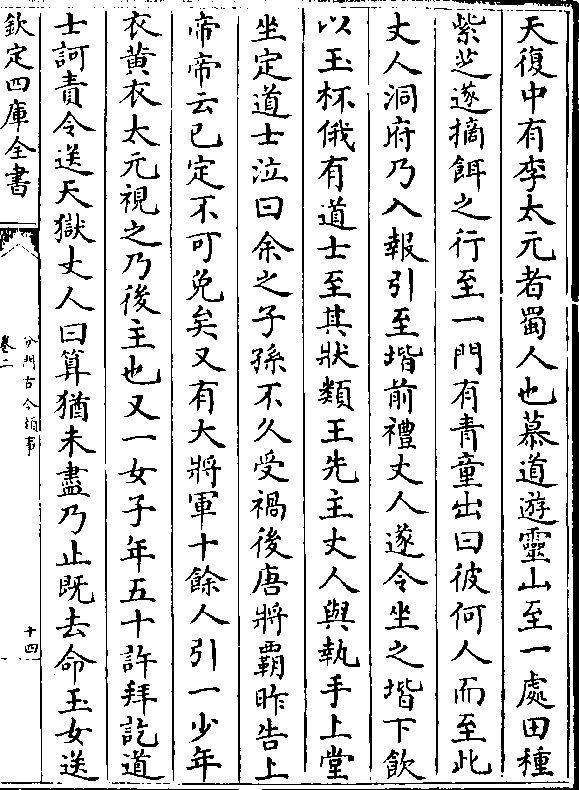 天復中有李太元者蜀人也慕道遊靈山至一處田種
紫芝遂摘餌之行至一門有青童出曰彼何人而至此
丈人洞府乃入報引至堦前禮丈人遂令坐之堦下飲
以玉杯俄有道士至其狀類王先主丈人與執手上堂
坐定道士泣曰余之子孫不久受禍後唐將覇昨告上
帝帝云已定不可免矣又有大將軍十餘人引一少年
衣黄衣太元視之乃後主也又一女子年五十許拜訖道
士訶責令送天獄丈人曰算猶未盡乃止既去命玉女送
欽定四庫全書
分門古今類事
卷二
十四